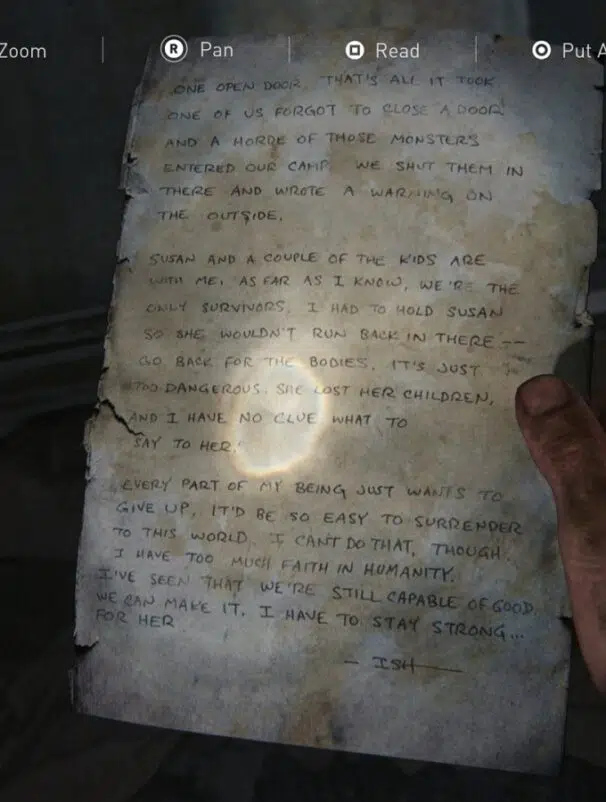 Zoom R Pan Read Put A
ONE OPEN DOOR. THAT'S ALL IT TOOK
ONE OF US FORGOT TO CLOSE A DOOR
AND A HORDE OF THOSE MONSTERS
ENTERED OUR CAMP. WE SHUT THEM IN
THERE AND WROTE A WARNING ON
THE OUTSIDE.
SUSAN AND A COUPLE OF THE KIDS ARE
WITH ME. AS FAR AS I KNOW, WE'RE THE
ONLY SURVIVORS. I HAD TO HOLD SUSAN
SO SHE WOULDN'T RUN BACK IN THERE --
GO BACK FOR THE BODIES. IT'S JUST
TOO DANGEROUS. SHE LOST HER CHILDREN,
AND I HAVE NO CLUE WHAT TO
SAY TO HER.
EVERY PART OF MY BEING JUST WANTS TO
GIVE UP. IT'D BE SO EASY TO SURRENDER
TO THIS WORLD. I CAN'T DO THAT, THOUGH.
I HAVE TOO MUCH FAITH IN HUMANITY.
I'VE SEEN THAT WE'RE STILL CAPABLE OF GOOD.
WE CAN MAKE IT. I HAVE TO STAY STRONG...
FOR HER
- ISH